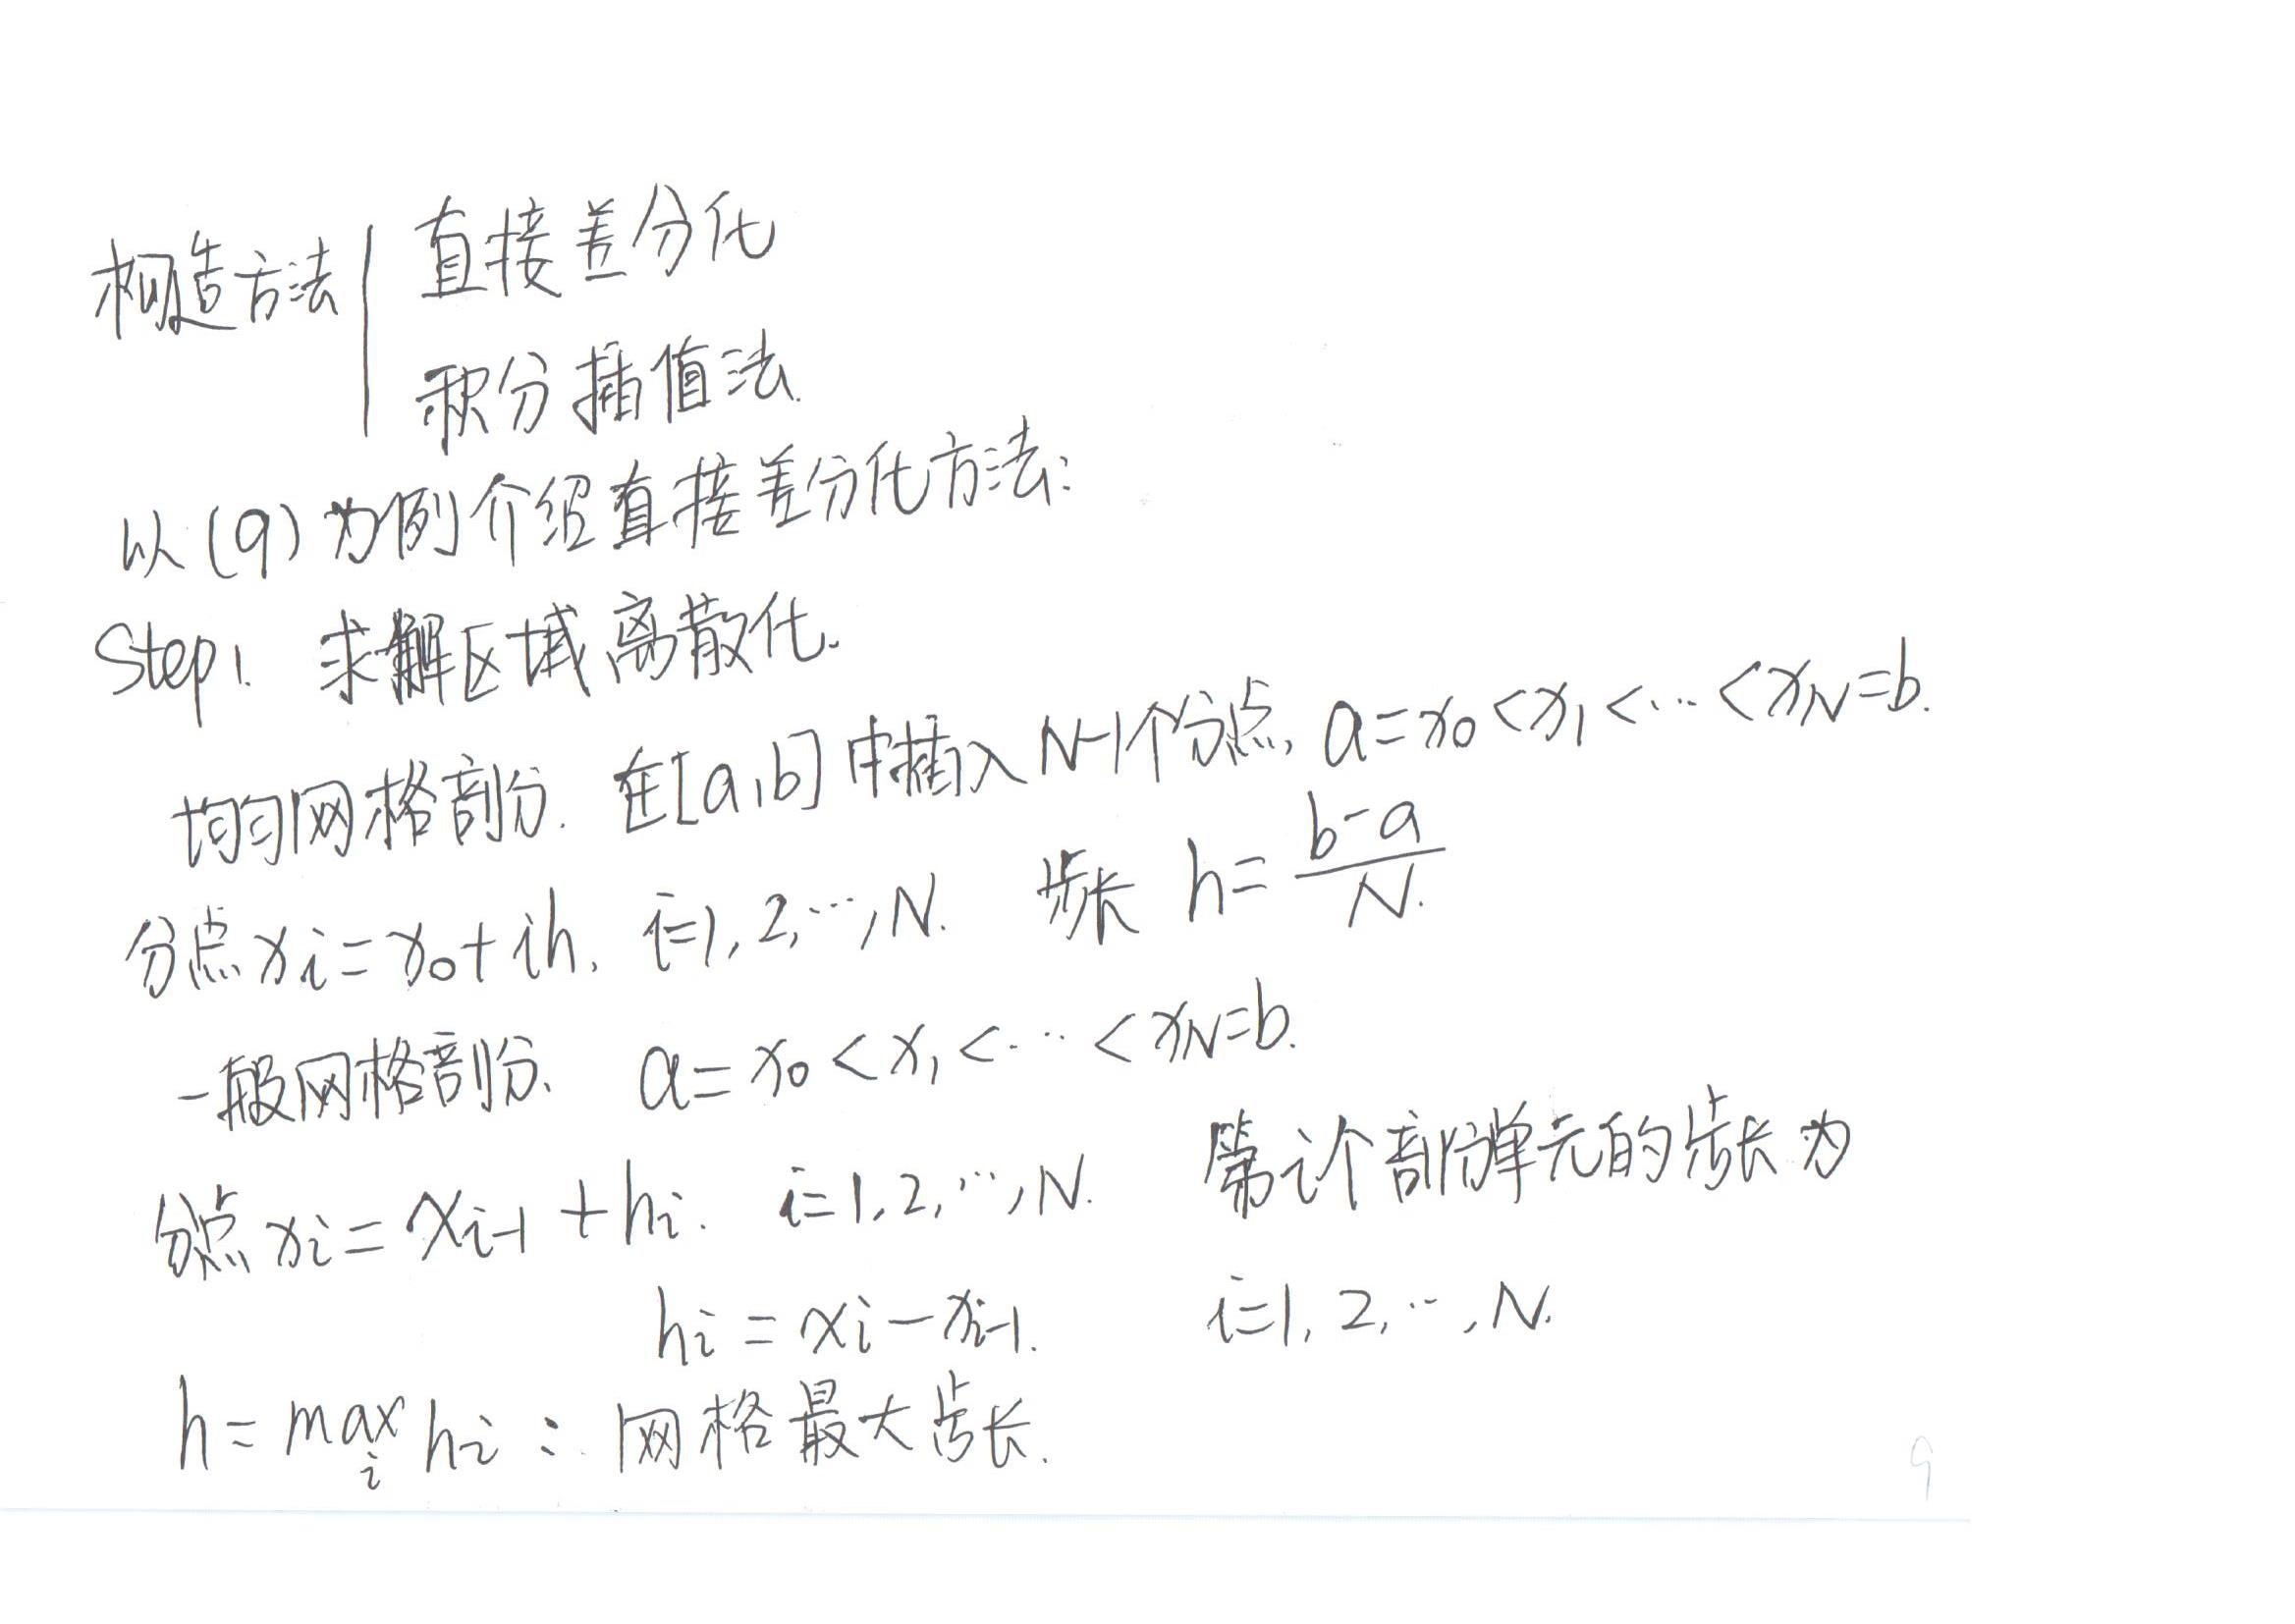 构造方法
直接差分化
积分插值法.
以(9)为例介绍直接差分化方法:
Step1. 求解区域离散化.
均匀网格剖分. 在[a,b]中插入N-1个分点, a=x₀<x₁<…<x_N=b.
分点xᵢ=x₀+ih, i=1,2,…,N. 步长 h=\frac{b-a}{N}.
一般网格剖分. a=x₀<x₁<…<x_N=b.
分点xᵢ=xᵢ₋₁+hᵢ. i=1,2,…,N. 第i个剖分单元的步长为
hᵢ=xᵢ-xᵢ₋₁. i=1,2,…,N.
h=max_i hᵢ: 网格最大步长.
9